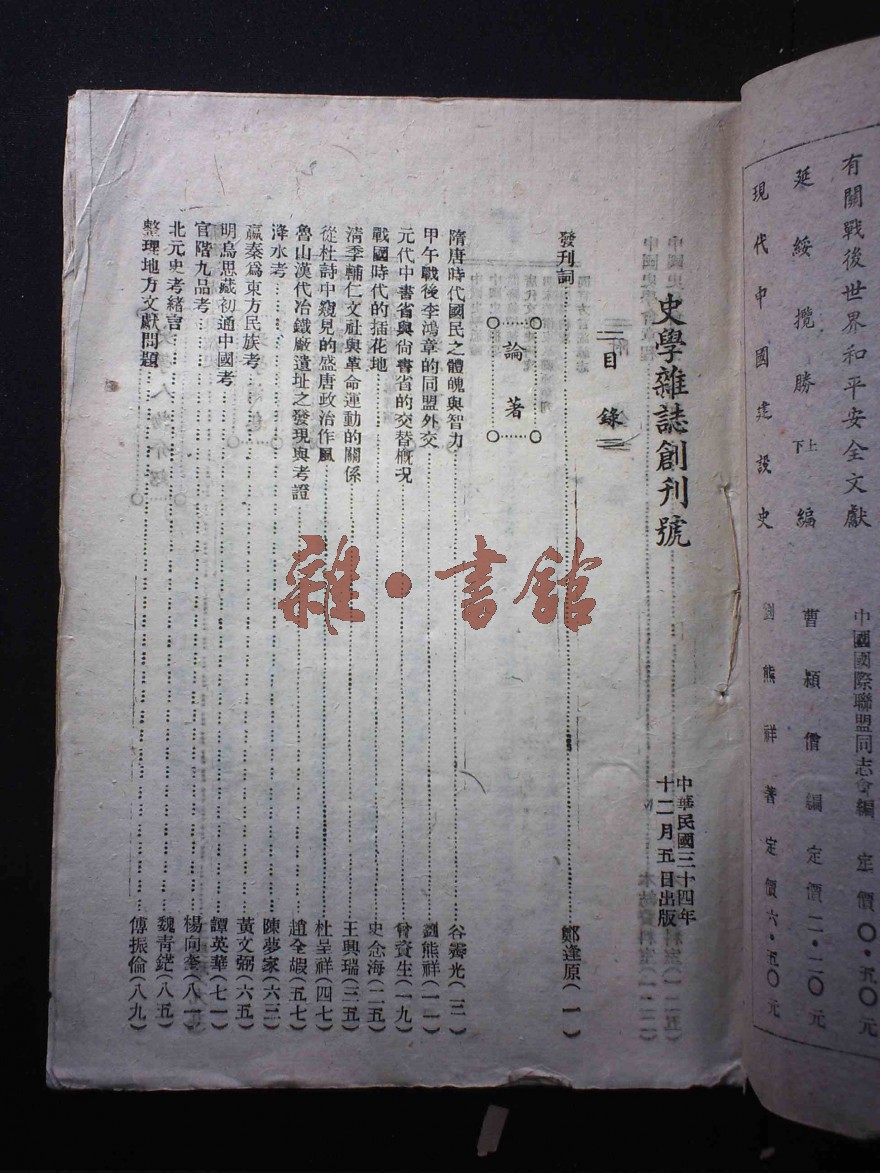 有關戰後世界和平安全文獻 中國國際聯盟同志會編 定價〇·五〇元
延綏攬勝 上下編 曹穎僧編 定價二·二〇元
現代中國建設史 劉熊祥著 定價六·五〇元
史學雜誌創刊號
中華民國三十四年
十二月五日出版
目錄
發刊詞 鄭逢原(一)
論著
隋唐時代國民之體魄與智力 谷霽光(三)
甲午戰後李鴻章的同盟外交 劉熊祥(一一)
元代中書省與尚書省的交替概況 曾資生(一九)
戰國時代的插花地 史念海(二五)
清季輔仁文社與革命運動的關係 王興瑞(三五)
從杜詩中窺見的盛唐政治作風 杜呈祥(四七)
魯山漢代冶鐵廠遺址之發現與考證 趙全嘏(五七)
洚水考 陳夢家(六三)
嬴秦爲東方民族考 黃文弼(六五)
明烏思藏初通中國考 譚英華(七一)
官階九品考 楊向奎(八一)
北元史考緒言 魏青鋩(八五)
整理地方文獻問題 傅振倫(八九)
雜·書館